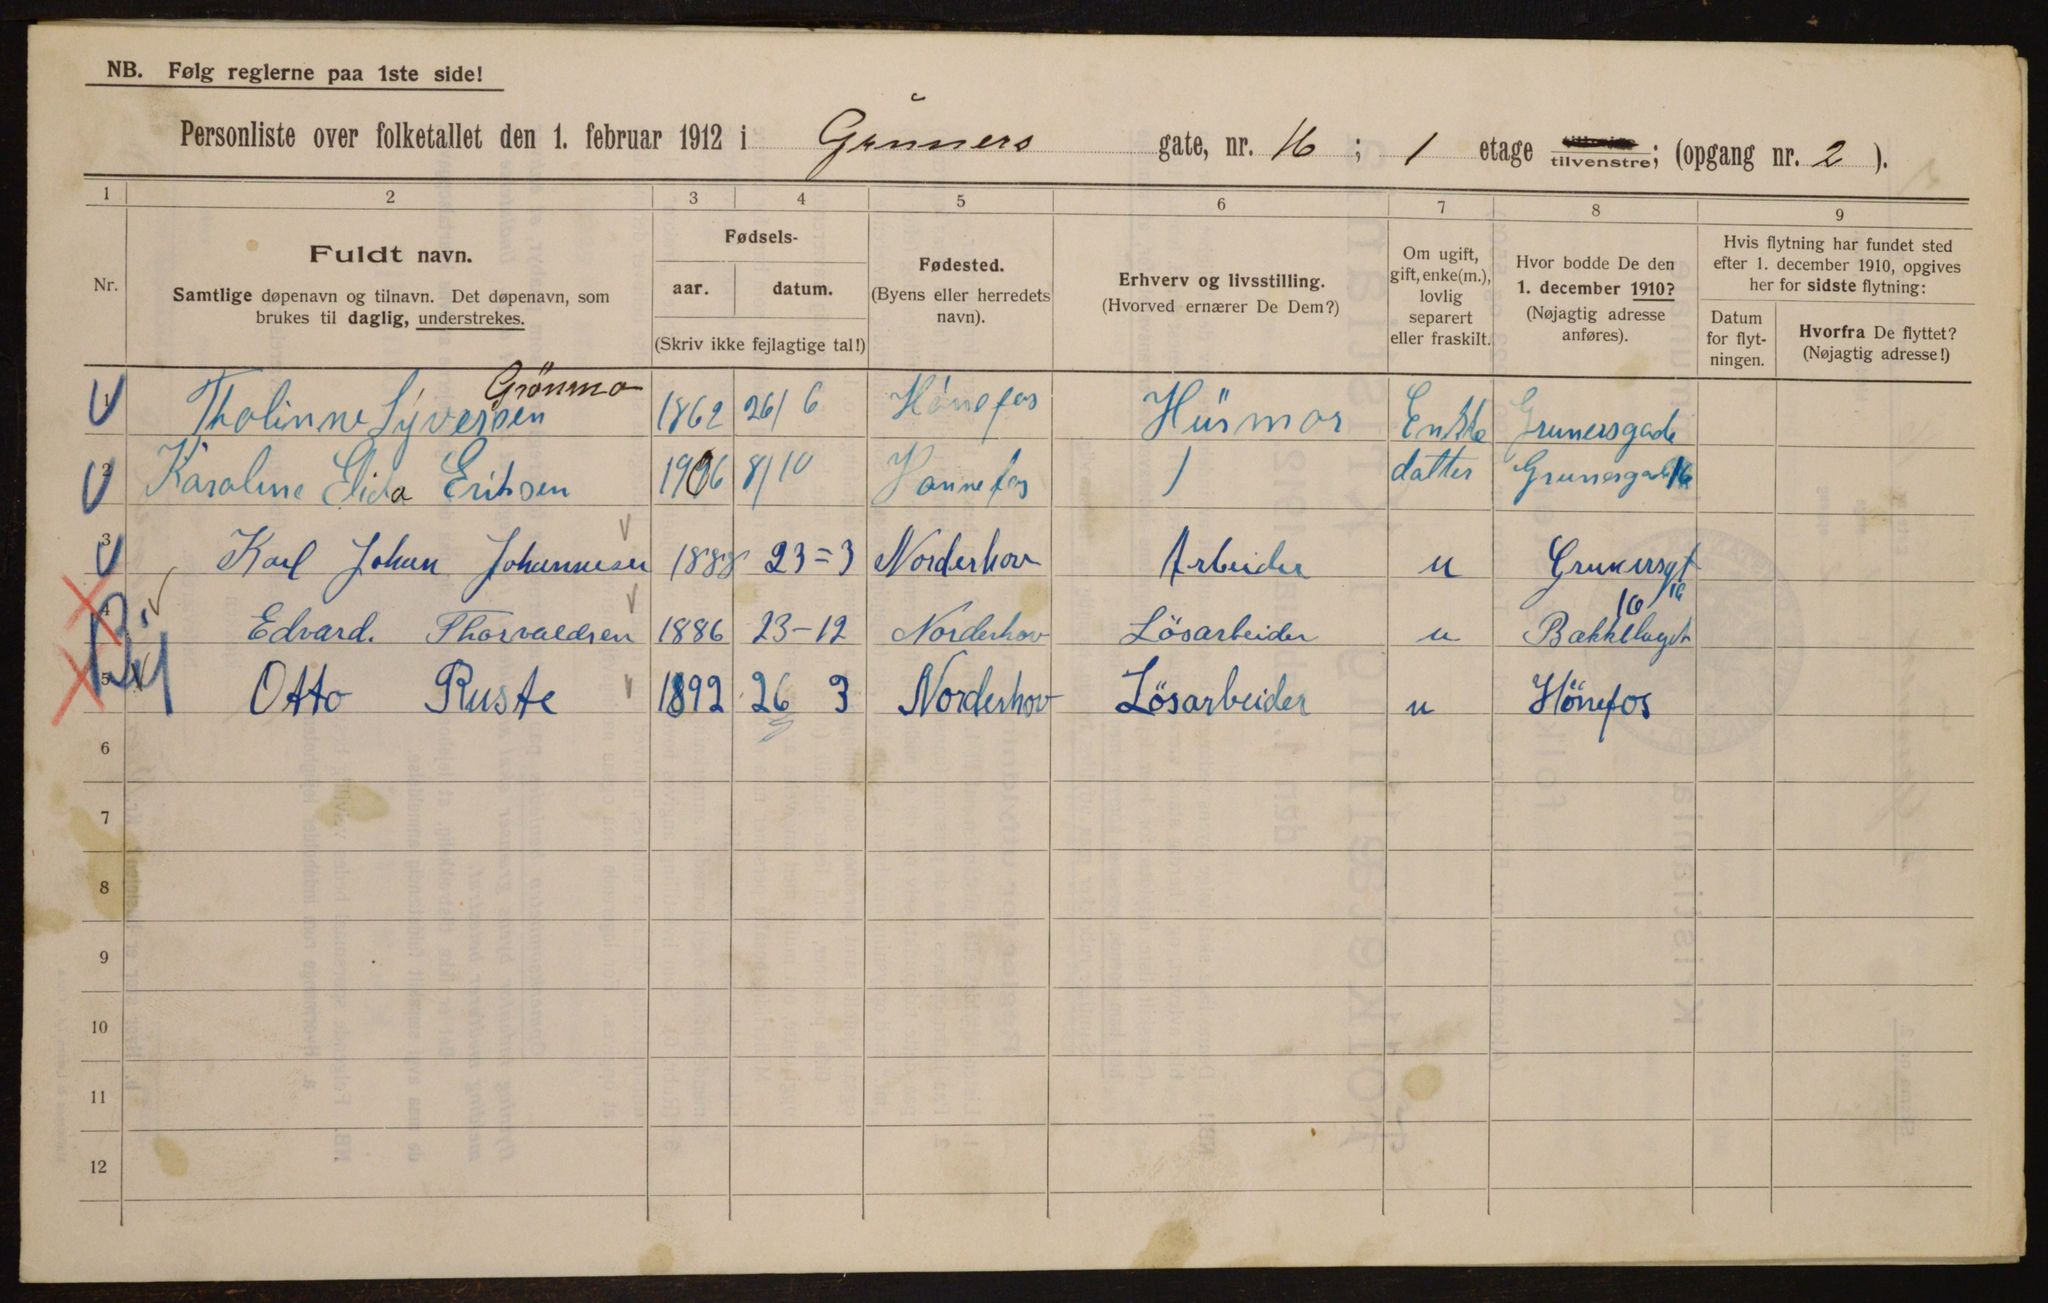 NB. Følg reglerne paa 1ste side!
Personliste over folketallet den 1. februar 1912 i Grüners gate, nr. 16 ; 1 etage tilvenstre; (opgang nr. 2 ).
1 2 3 4 5 6 7 8 9
Nr.
Fuldt navn.
Samtlige døpenavn og tilnavn. Det døpenavn, som
brukes til daglig, understrekes.
Fødsels-
aar. datum.
(Skriv ikke fejlagtige tal!)
Fødested.
(Byens eller herredets
navn).
Erhverv og livsstilling.
(Hvorved ernærer De Dem?)
Om ugift,
gift, enke(m.),
lovlig
separert
eller fraskilt.
Hvor bodde De den
1. december 1910?
(Nøjagtig adresse
anføres).
Hvis flytning har fundet sted
efter 1. december 1910, opgives
her for sidste flytning:
Datum
for flyt-
ningen.
Hvorfra De flyttet?
(Nøjagtig adresse!)
Grönmo
1 Tholinne Syversen 1862 26/6 Hönefos Husmor Enkke Grunersgade
2 Karoline Elida Eriksen 1906 8/10 Hönnefos / datter Grunersgade 16
3 Karl Johan Johannesen 1888 23=3 Norderhov Arbeider u Grunersgt 16
4 Edvard. Thorvaldsen 1886 23-12 Norderhov Lösarbeider u Bækkelaget
5 Otto Ruste 1892 26 3 Norderhov Lösarbeider u Hönefos
6
7
8
9
10
11
12